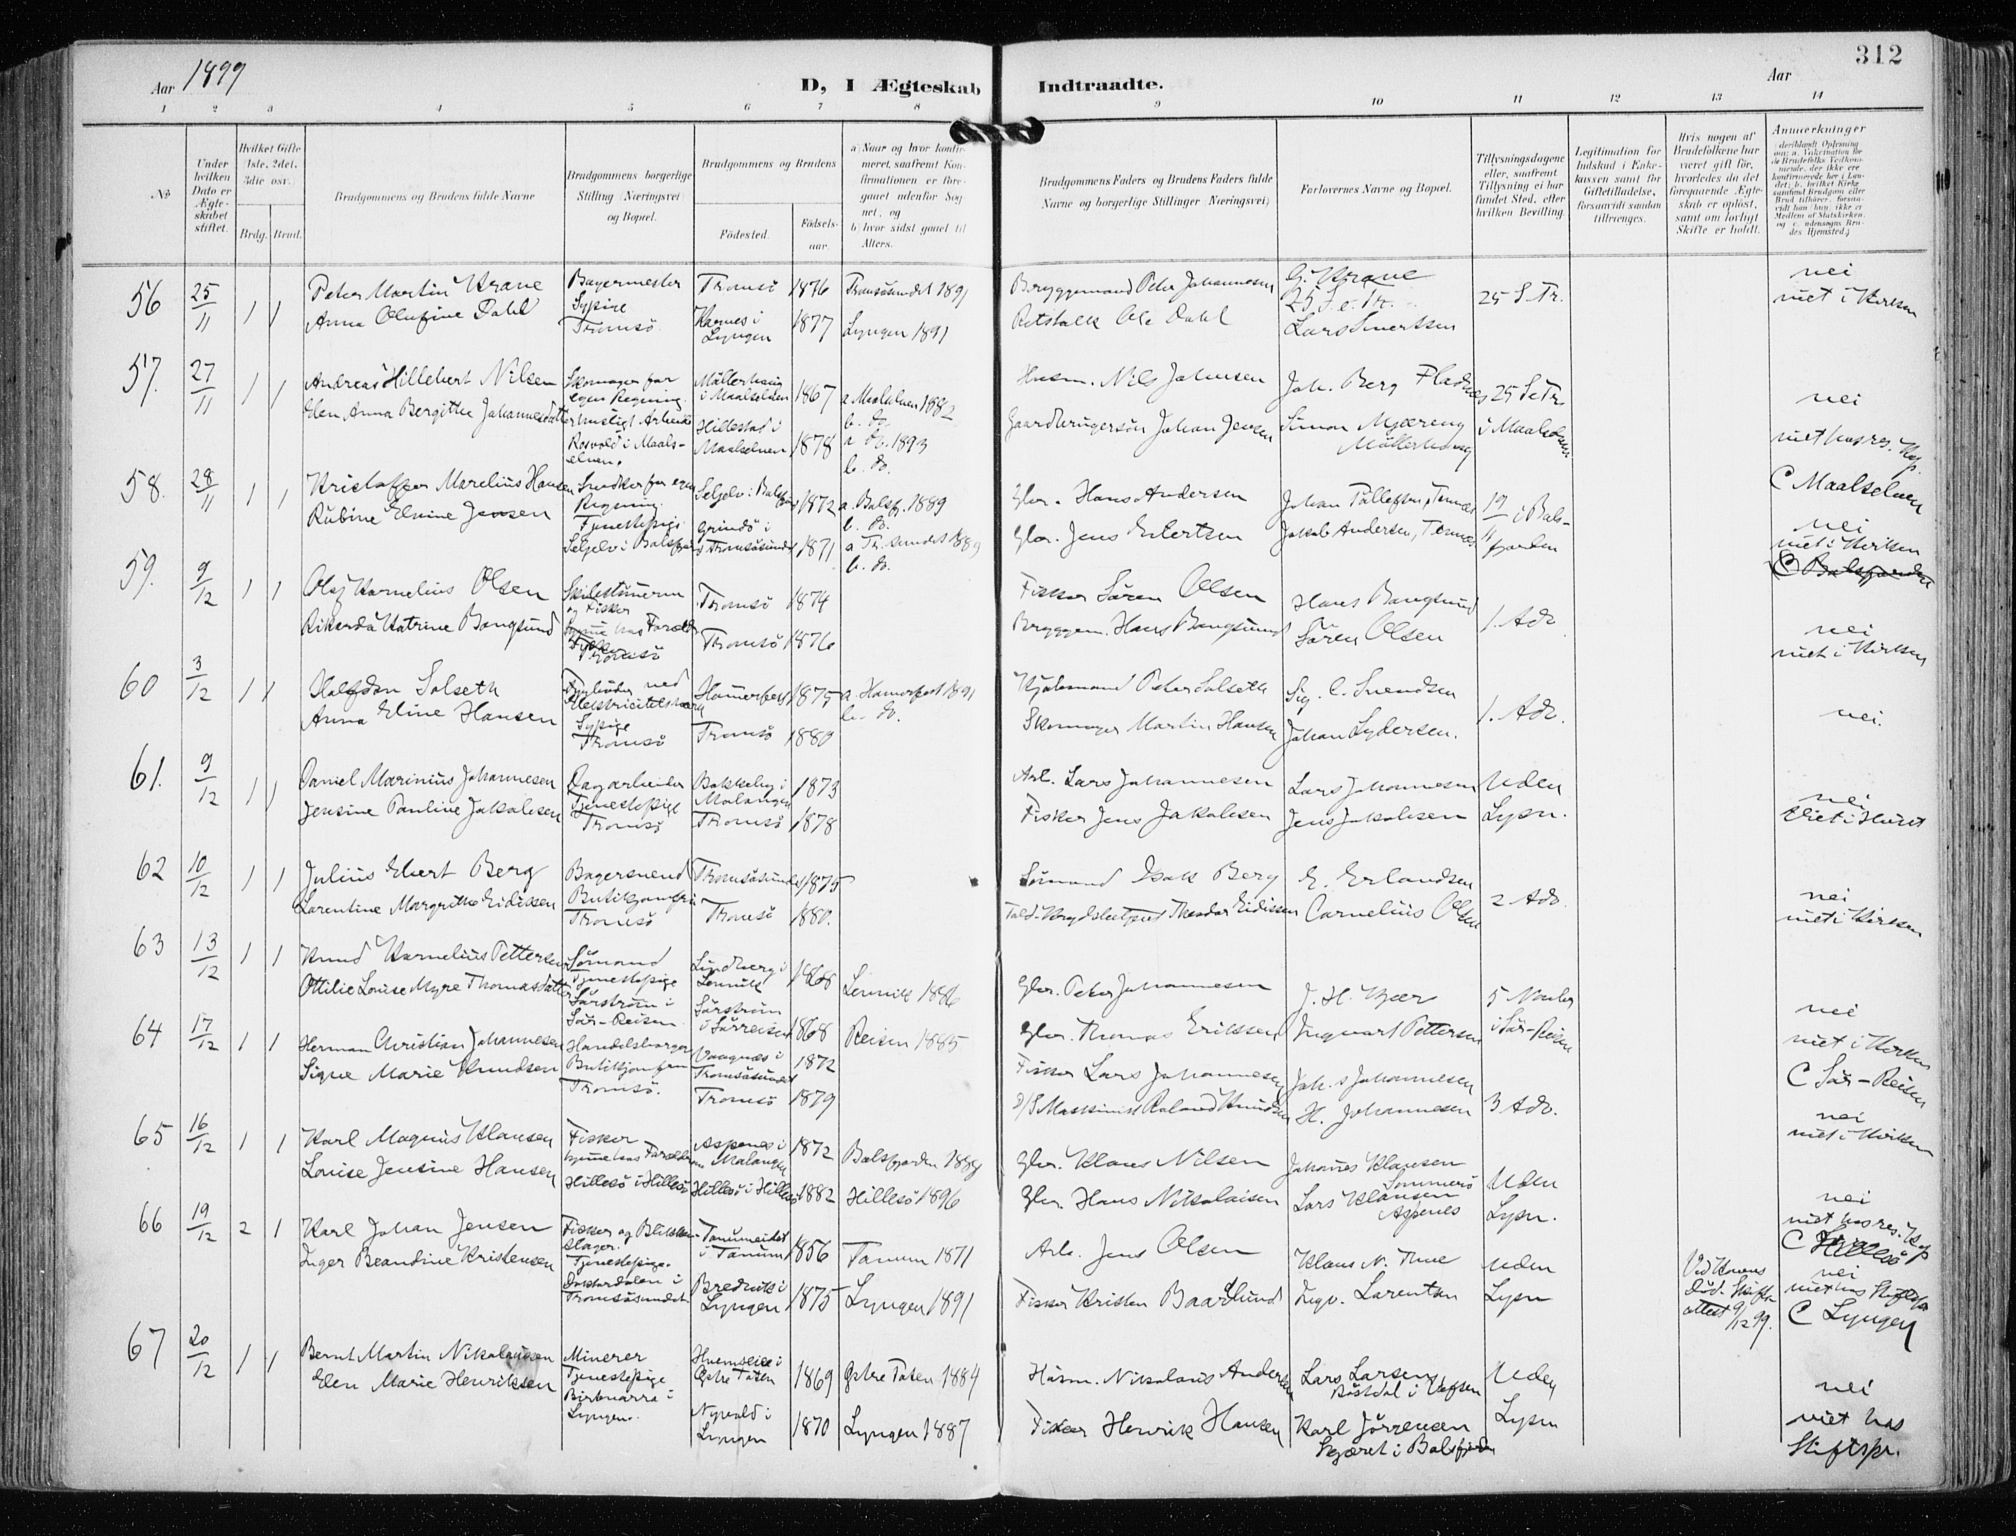 312
Aar 1899
D, I Ægteskab Indtraadte.
Aar
1 2 3 4 5 6 7 8 9 10 11 12 13 14
No
Under hvilken Dato er Ægteskabet stiftet.
Hvilket Gifte 1ste, 2det, 3die osv.
Brdg. Brud.
Brudgommens og Brudens fulde Navne
Brudgommens borgerlige Stilling (Næringsvei) og Bopæl.
Brudgommens og Brudens
Fødested.
Fødselsaar.
a) Naar og hvor konfirmeret, saafremt Konfirmationen er foregaaet udenfor Sognet, og
b) hvor sidst gaaet til Alters.
Brudgommens Faders og Brudens Faders fulde Navne og borgerlige Stillinger (Næringsvei)
Forlovernes Navne og Bopæl.
Tillysningsdagene eller, saafremt Tillysning ei har fundet Sted, efter hvilken Bevilling.
Legitimation for Indskud i Enkekassen samt for Giftetilladelse, forsaavidt saadan tiltrænges.
Hvis nogen af Brudefolkene har været gift før, hvorledes da det foregaaende Ægteskab er opløst, samt om lovligt Skifte er holdt.
Anmerkninger
56 25/11 1 1 Peter Martin Krane Bagermester Tromsö 1876 Tromsösundet 1891 Bryggemand Peter Johannesen G. Krane 25 S. Tr. nei
Anna Olufine Dahl Sypige Tromsö Karnes i Lyngen 1877 Lyngen 1891 Ole Dahl Lars viet i Kirken
57. 27/11 1 1 Andreas Hillebert Nilsen Skomager for egen Regning. i Maalselven 1867 a Maalselven 1882 b. do. Husm. Nils Johnsen Joh. Berg 25 S e Tr. nei
Elen Anna Bergitte Johannesdatter husligt Arbeide Rosvold i Maalselven. Hillestad i Maalselven 1878 a do. 1893 b. do. Gaardbrugersön Johan Jensen Simon i Maalselven viet hos res. Kap. C Maalselven
58. 28/11 1 1 Kristoffer Marelius Hansen Snedker for egen Regning. Seljelv i Balsfjord 1872 a. Balsfj. 1889 b. do. Gbr. Hans Andersen Johan Tollefsen, 19/11 i Balsfjorden nei
Rubine Elvine Jensen Tjenestepige. Seljelv i Balsfjord Grindö i Tromsösundet 1871. a Tr.sundet 1889 b. do. Gbr. Jens Eilertsen Jakob Andersen, viet i Kirken
C Balsfjorden
59. 9/12 1 1 Olaf Kornelius Olsen Skibstömmerm. og Fisker Tromsö 1874 Fisker Sören Olsen Hans Bangsund 1. Adv. nei
Rikarda Katrine Bangsund hjemme hos Foræld. Tromsö Tromsö 1876 Bryggem. Hans Bangsund Sören Olsen viet i Kirken
60 3/12 1 1 Halfdan Solseth Fyrböder ved Elektricitetsværk Hammerfest 1875 a. Hammerfest 1891 b. do. Peter Solseth Sig. C. Svendsen 1. Adv. nei.
Anna Eline Hansen Sypige Tromsö Tromsö 1880 Skomager Martin Hansen Johan Sydersen.
61. 9/12 1 1 Daniel Marinius Johannesen Dagarbeider Bakkeby i Malangen 1873 Arb. Lars Johannesen Lars Johannesen Uden Lysn. nei
Jensine Pauline Jakobsen Tjenestepige Tromsö Tromsö 1878 Fisker Jens Jakobsen Jens Jakobsen viet i Huset
62 10/12 1 1 Julius Ebert Berg Bagersvend Tromsösundet 1875 Sömand Isak Berg E. Erlandsen 2 Adv. nei
Larentine Margrethe Eidissen Butikjomfru Tromsö Tromsö 1880. Theodor Eidissen Cornelius Olsen viet i Kirken
63 13/12 1 1 Knud Kornelius Pettersen Sömand Lindberg i Lenvik 1868 Lenvik 1886 Gbr. Peter Johannesen J. H. Kjær 5 Novbr. i Sör-Reisen nei
Ottilie Louise Myre Thomasdatter Tjenestepige Sörström i Sör-Reisen Sörström i Sörreisen 1868 Reisen 1885 Gbr. Thomas Eriksen Ingvart Pettersen viet i Kirken
C Sör-Reisen
64 17/12 1 1 Herman Christian Johannesen Handelsborger Vaagnæs i Tromsösundet 1872 Fisker Lars Johannesen Joh.s Johannesen 3 Adv. nei
Signe Marie Knudsen Butikjomfru Tromsö. Tromsö 1879 D/S Maskinist Roland Knudsen H. Johannesen viet i Kirken
65 16/12 1 1 Karl Magnus Klausen Fisker Aspenes i Malangen 1872 Balsfjorden 1888 Gbr. Klaus Nilsen Johannes Klausen Sommerö Uden Lysn. nei
Louise Jensine Hansen hjemme hos Forældr. Hillesö i Hillesö Hillesö i Hillesö 1882 Hillesö 1896 Gbr. Hans Nikolaisen Lars Klausen Aspenes viet hos res. Kap.
C Hillesö
66 19/12 2 1 Karl Johan Jensen Fisker og Blikkenslager. i Tanum 1856 Tanum 1871 Arb. Jens Olsen Klaus N. Uden Lysn Ved Konens Död. Skifteattest 9/12 99. nei
Inger Beandine Kristensen Tjenestepige. i Tromsösundet Bredvik i Lyngen 1875 Lyngen 1891 Fisker Kristen Baardlund Ingv. Larentsen viet hos Stiftspr.
C Lyngen
67 20/12 1 1 Bernt Martin Nikolaisen Minerer i Östre Toten 1869 Östre Toten 1884 Husm. Nikolaus Andersen Lars Larsen Uden Lysn nei
Elen Marie Henriksen Tjenestepige Birtavarra i Lyngen. Nyvold i Lyngen 1870 Lyngen 1887 Fisker Henrik Hansen Karl Jörgensen i Balsfjorden viet hos Stiftspr.